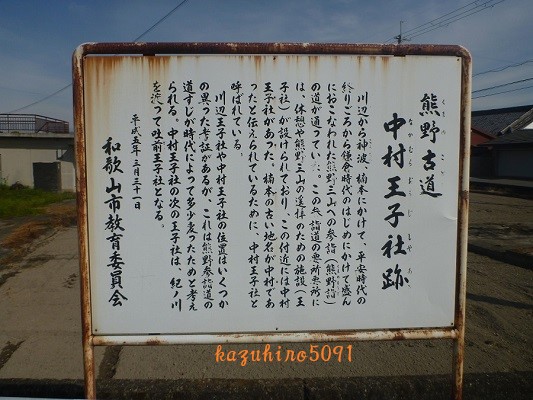 熊野古道
くまの こどう
中村王子社跡
なかむらおうじしゃあと
川辺から神波、楠本にかけて、平安時代の
終りごろから鎌倉時代のはじめにかけて盛ん
におこなわれた熊野三山への参詣（熊野詣）
の道が通っていた。この参詣道の要所要所に
は、休憩や熊野三山の遥拝のための施設（王
子社）が設けられており、この付近には中村
王子社があった。楠本の古い地名が中村であ
ったと伝えられているために、中村王子社と
呼ばれている。
川辺王子社や中村王子社の位置はいくつか
の異った考証があるが、これは熊野参詣道の
道すじが時代によって多少変ったためと考え
られる。中村王子社の次の王子社は、紀ノ川
を渡って吐前王子社となる。
平成五年三月三十一日
和歌山市教育委員会
kazuhiro5091